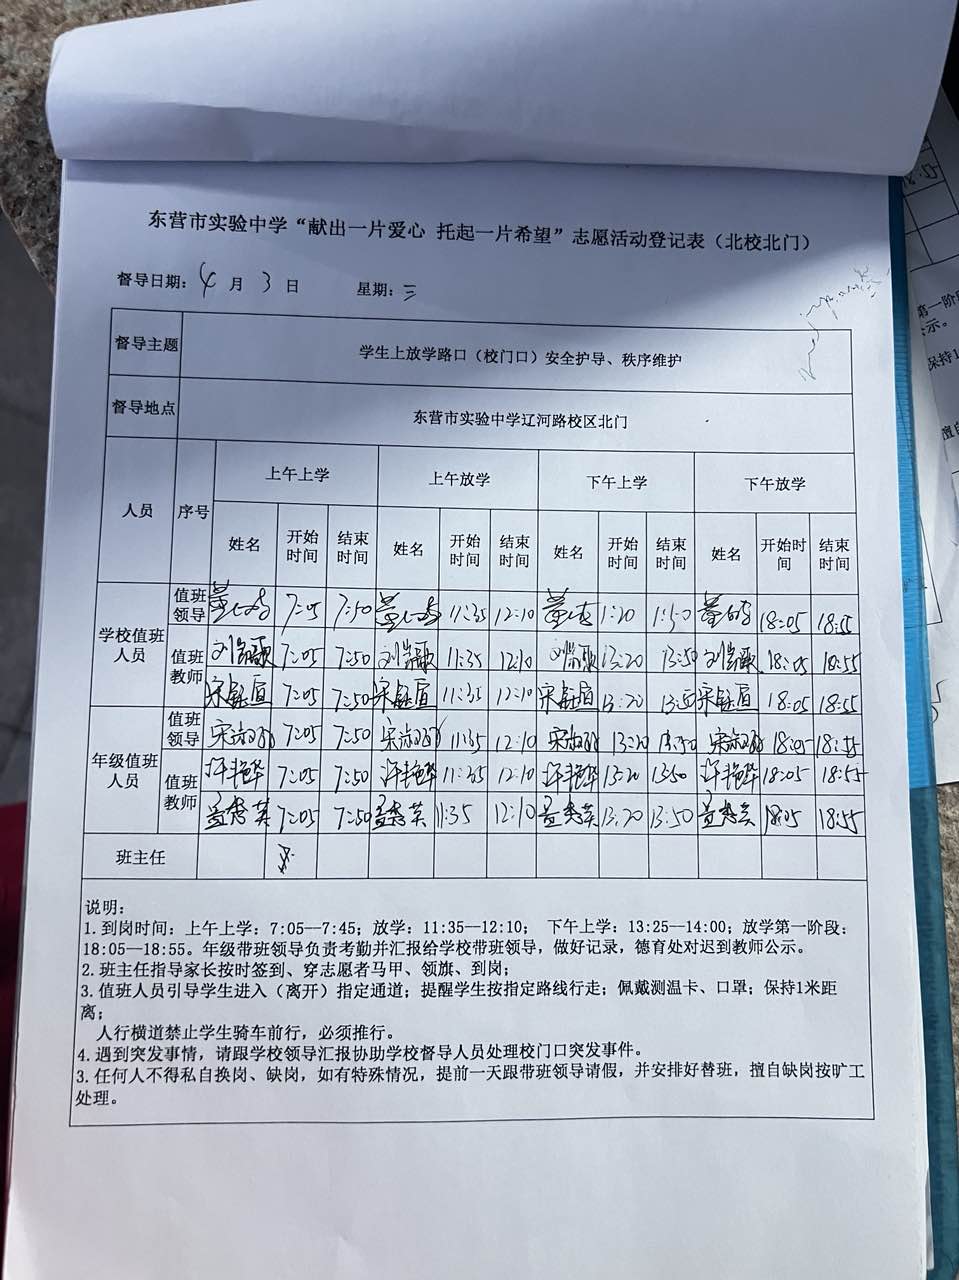 东营市实验中学“献出一片爱心 托起一片希望”志愿活动登记表（北校北门）
督导日期：4月3日 星期：三
督导主题 学生上放学路口（校门口）安全护导、秩序维护
督导地点 东营市实验中学辽河路校区北门
人员 序号 上午上学 上午放学 下午上学 下午放学
姓名 开始时间 结束时间 姓名 开始时间 结束时间 姓名 开始时间 结束时间 姓名 开始时间 结束时间
学校值班人员 值班领导 7:05 7:50 11:35 12:10 1:20 1:50 18:05 18:55
值班教师 7:05 7:50 11:35 12:10 13:20 13:50 18:05 18:55
7:05 7:50 11:35 12:10 13:20 13:50 18:05 18:55
年级值班人员 值班领导 7:05 7:50 11:35 12:10 13:20 13:50 18:05 18:55
值班教师 许艳华 7:05 7:50 许艳华 11:35 12:10 许艳华 13:20 13:50 许艳华 18:05 18:55
孟秀英 7:05 7:50 孟秀英 11:35 12:10 孟秀英 13:20 13:50 孟秀英 18:05 18:55
班主任
说明：
1. 到岗时间：上午上学：7:05--7:45；放学：11:35--12:10； 下午上学：13:25--14:00；放学第一阶段：
18:05--18:55。年级带班领导负责考勤并汇报给学校带班领导，做好记录，德育处对迟到教师公示。
2. 班主任指导家长按时签到、穿志愿者马甲、领旗、到岗；
3. 值班人员引导学生进入（离开）指定通道；提醒学生按指定路线行走；佩戴测温卡、口罩；保持1米距
离；
人行横道禁止学生骑车前行，必须推行。
4. 遇到突发事情，请跟学校领导汇报协助学校督导人员处理校门口突发事件。
3. 任何人不得私自换岗、缺岗，如有特殊情况，提前一天跟带班领导请假，并安排好替班，擅自缺岗按旷工
处理。
第一阶
示。
保持1